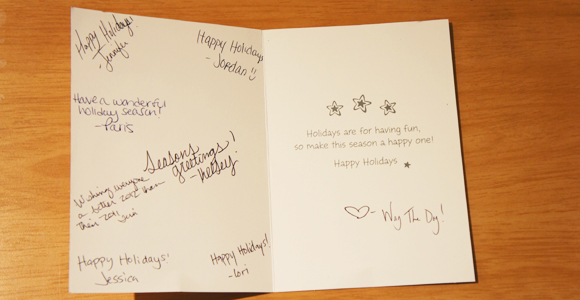 Happy Holidays!
- Jennifer
Happy Holidays
- Jordan !!
Have a wonderful
holiday season!
- Paris
Seasons
greetings!
- Kelsey
Wishing everyone
a better 2012 than
their 2011
- Erin
Happy Holidays!
Jessica
Happy Holidays!
- Lori
Holidays are for having fun,
so make this season a happy one!
Happy Holidays
- Wag The Dog!